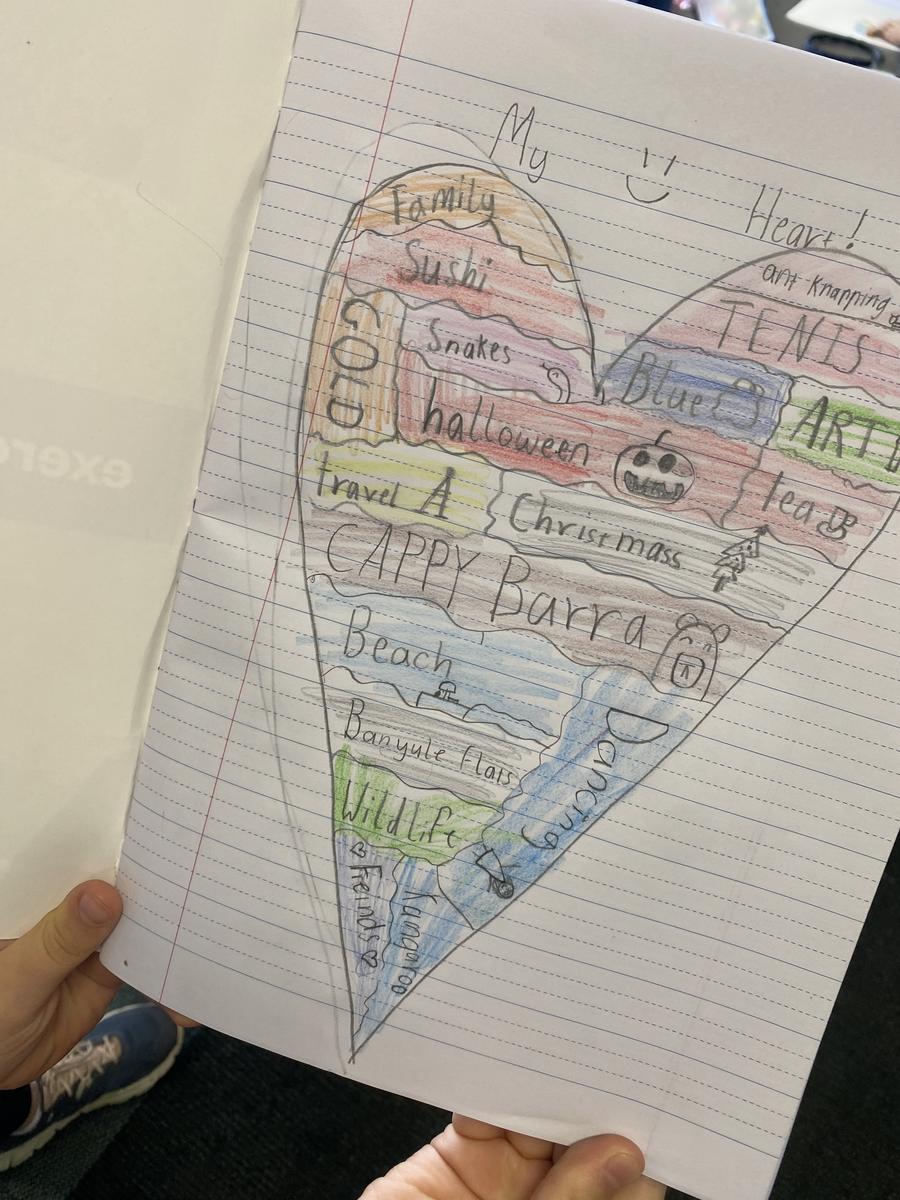 My
Heart!
Family
Sushi
GOLD
Snakes
halloween
travel A
Christmass
CAPPY Barra
Beach
Banyule Flats
Wildlife
Freinds
Kangaroo
Dancing
ant knapping
TENIS
Blue
ART
tea